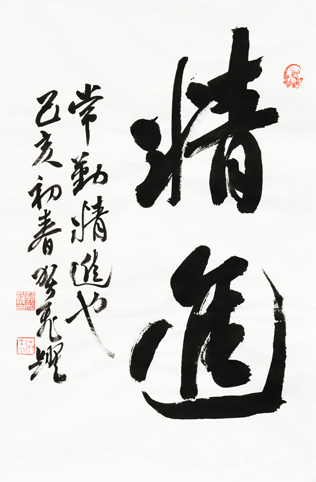 精進
常勤精進也
己亥初春